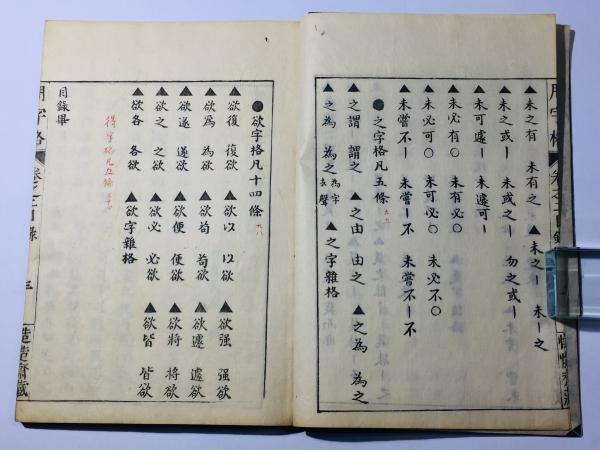 ▲未之有 未有之 ▲未之｜ 未｜之
▲未之或｜ 未或之｜ 勿之或｜
▲未可遽｜ 未遽可｜
▲未必有〇 未有必〇
▲未必可〇 未可必〇 未必不〇
▲未嘗不｜ 未嘗｜不 未嘗不｜不
●之字格凡五條
▲之謂 謂之 ▲之由 由之 ▲之為 為之
▲之為 為之 為字去聲 ▲之字雜格
●欲字格凡十四條
▲欲復 復欲 ▲欲以 以欲 ▲欲强 强欲
▲欲為 為欲 ▲欲苟 苟欲 ▲欲遽 遽欲
▲欲遂 遂欲 ▲欲便 便欲 ▲欲將 將欲
▲欲之 之欲 ▲欲必 必欲 ▲欲皆 皆欲
▲欲各 各欲 ▲欲字雜格
目錄畢
用字格 卷之 目錄 三 慥慥齋藏